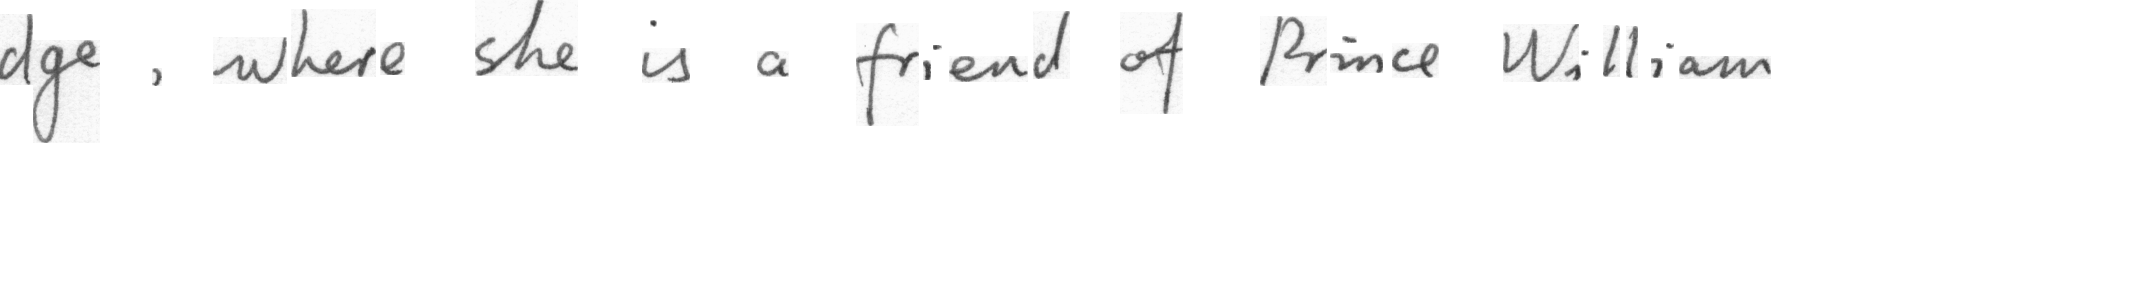 dge , where she is a friend of Prince William